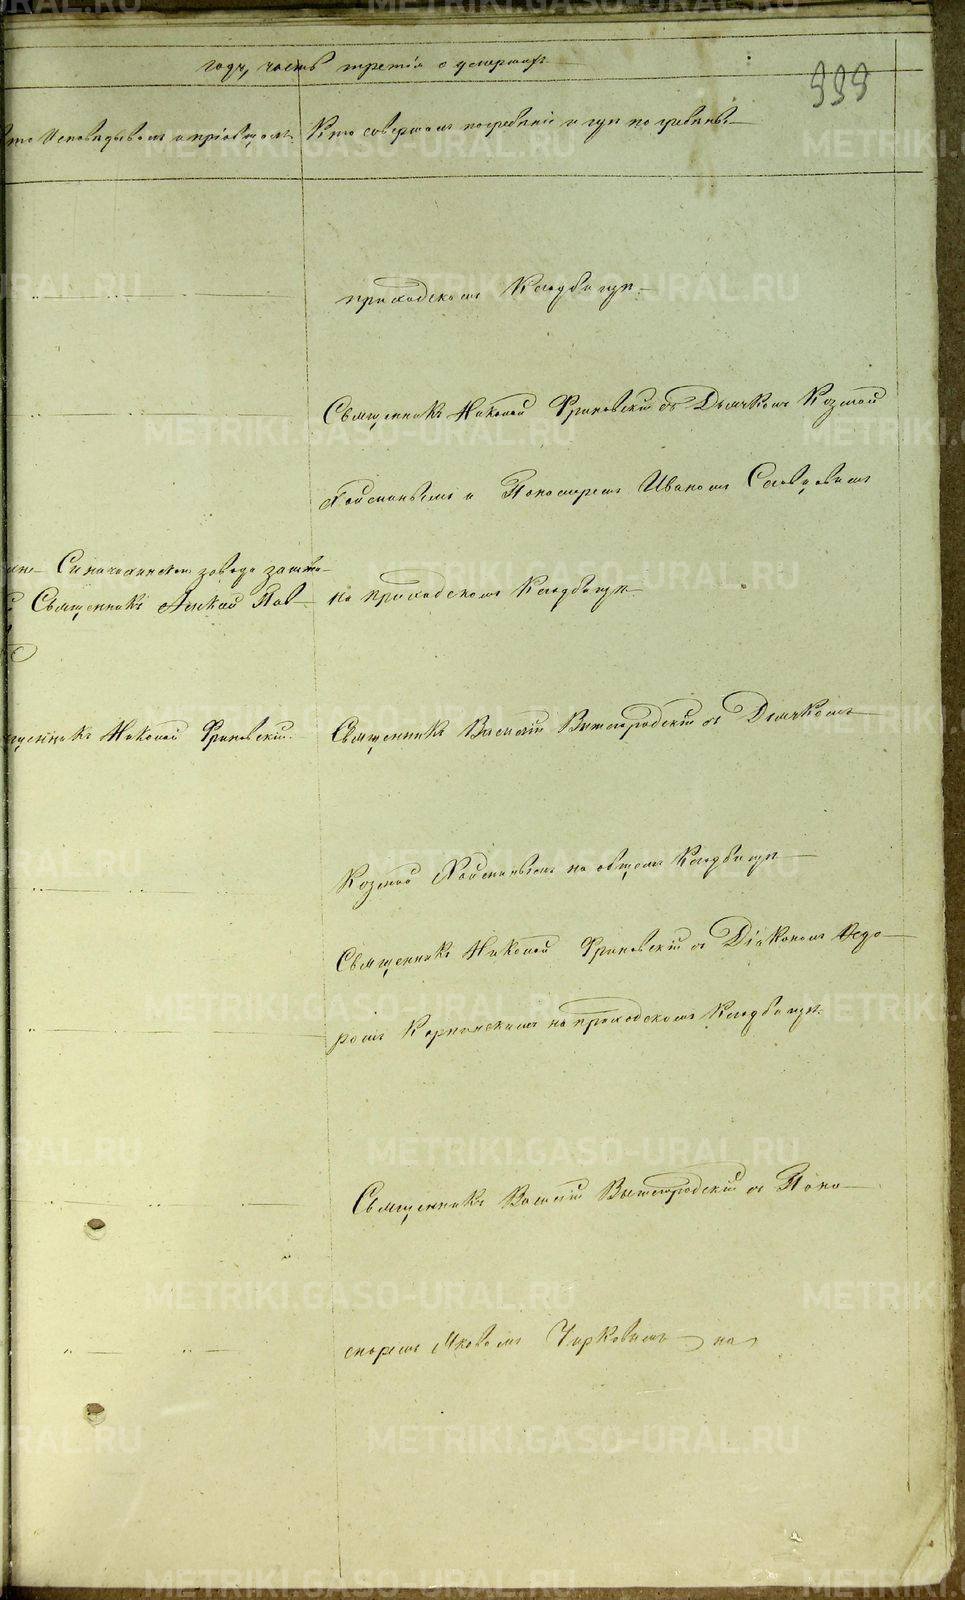 году, часть третія о умершихъ
999
Кто исповѣдывалъ и пріобщалъ. Кто совершалъ погребеніе и гдѣ погребены.
приходскомъ Кладбищѣ.
Священникъ Николай Флоровскій съ Дьячкомъ Козмой
и Пономаремъ Иваномъ
Синячихинскаго завода зашта-
Священникъ Алексѣй Пав- на приходскомъ Кладбищѣ.
щенникъ Николай Флоровскій. Священникъ Василій Вышегородскій съ Дьячкомъ
Козмой на общемъ Кладбищѣ
Священникъ Николай Флоровскій съ Діакономъ Ѳедо-
ромъ Карпинскимъ на приходскомъ Кладбищѣ.
Священникъ Василій Вышегородскій съ Поно-
маремъ Яковомъ Чирковымъ на
METRIKI.GASO-URAL.RU